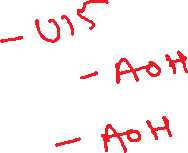 - U15
- AOH
- AOH